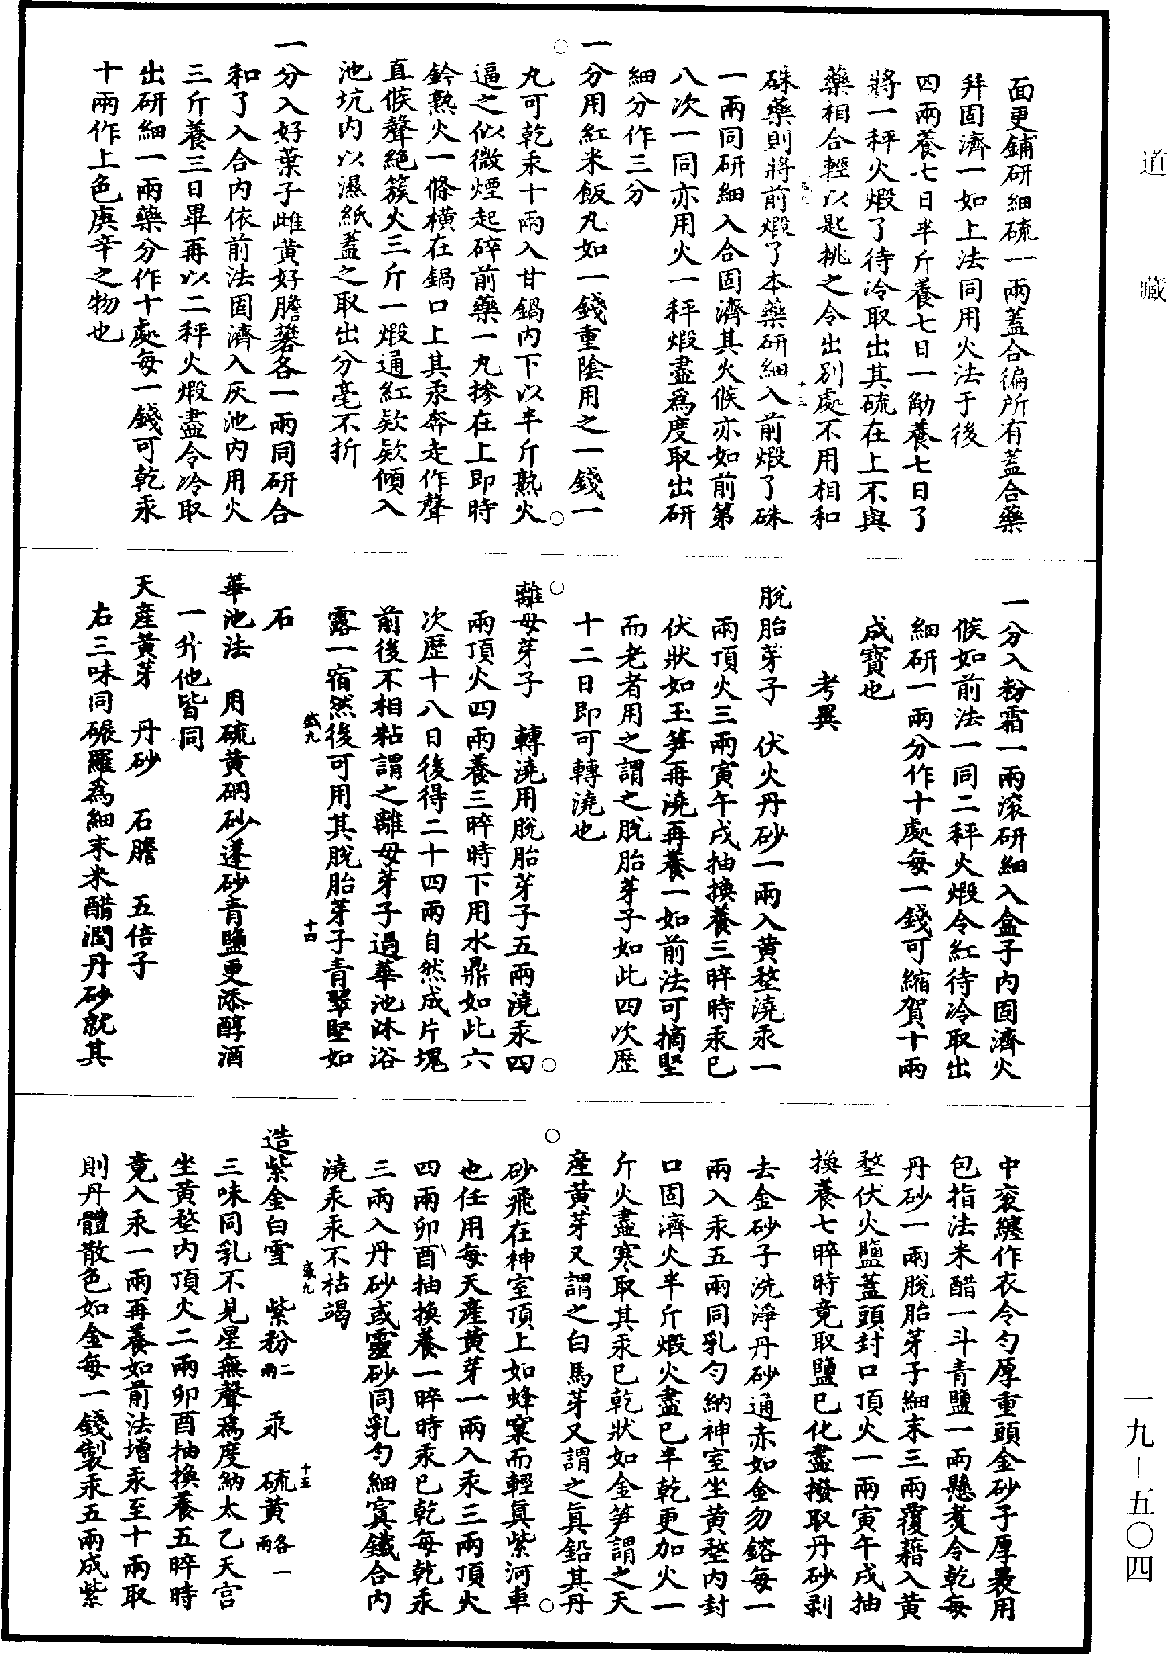 道藏
面更鋪研細硫一兩蓋合徧所有蓋合藥
拜固濟一如上法同用火法于後
四兩養七日半斤養七日一觔養七日了
將一秤火煆了待冷取出其硫在上不與
藥相合輕以匙挑之令出别處不用相和
十三
硃藥則將前煆了本藥研細入前煆了硃
一兩同研細入合固濟其火候亦如前第
八次一同亦用火一秤煆盡爲度取出研
細分作三分
一分用紅米飯丸如一錢重陰用之一錢一
丸可乾汞十兩入甘鍋内下以半斤熟火
逼之似微煙起碎前藥一丸摻在上即時
鈐熟火一條橫在鍋口上其汞奔走作聲
直候聲絶簇火三斤一煆通紅欵欵傾入
池坑内以濕紙蓋之取出分毫不折
一分入好葉子雌黄好膽礬各一兩同研合
和了入合内依前法固濟入灰池内用火
三斤養三日畢再以二秤火煆盡令冷取
出研細一兩藥分作十處每一錢可乾汞
十兩作上色庚辛之物也
一分入粉霜一兩滚研細入盒子内固濟火
候如前法一同二秤火煆令紅待冷取出
細研一兩分作十處每一錢可縮賀十兩
成寶也
考異
脫胎芽子　伏火丹砂一兩入黄整澆汞一
兩頂火三兩寅午戌抽換養三晬時汞已
伏狀如玉笋再澆再養一如前法可摘堅
而老者用之謂之脫胎芽子如此四次歷
十二日即可轉澆也
離母芽子　轉澆用脫胎芽子五兩澆汞四
兩頂火四兩養三晬時下用水鼎如此六
次歷十八日後得二十四兩自然成片塊
前後不相粘謂之離母芽子過華池沐浴
露一宿然後可用其脫胎芽子青翠堅如
十四
石
華池法　用硫黄硇砂蓬砂青鹽更添醇酒
一升他皆同
天産黄芽　丹砂　石膽　五倍子
右三味同碾羅爲細末米醋潤丹砂就其
中衮纏作衣令勻厚重頭金砂子厚裹用
包指法米醋一斗青鹽一兩懸煑令乾每
丹砂一兩脫胎芽子細末三兩覆藉入黄
整伏火鹽蓋頭封口頂火一兩寅午戌抽
換養七晬時竟取鹽已化盡撥取丹砂剥
去金砂子洗淨丹砂通赤如金勿鎔每一
兩入汞五兩同乳勻納神室坐黄整内封
口固濟火半斤煆火盡已半乾更加火一
斤火盡寒取其汞已乾狀如金笋謂之天
産黄芽又謂之白馬芽又謂之真鉛其丹
砂飛在神室頂上如蜂窠而輕真紫河車
也任用每天産黄芽一兩入汞三兩頂火
四兩卯酉抽換養一晬時汞已乾每乾汞
三兩入丹砂或靈砂同乳勻細寘鐵合内
澆汞汞不枯竭
十五
造紫金白雪　紫粉二兩　汞　硫黄各一兩
三味同乳不見星無聲爲度納太乙天宫
坐黄整内頂火二兩卯酉抽換養五晬時
竟入汞一兩再養如前法增汞至十兩取
則丹體散色如金每一錢製汞五兩成紫
一九—五〇四